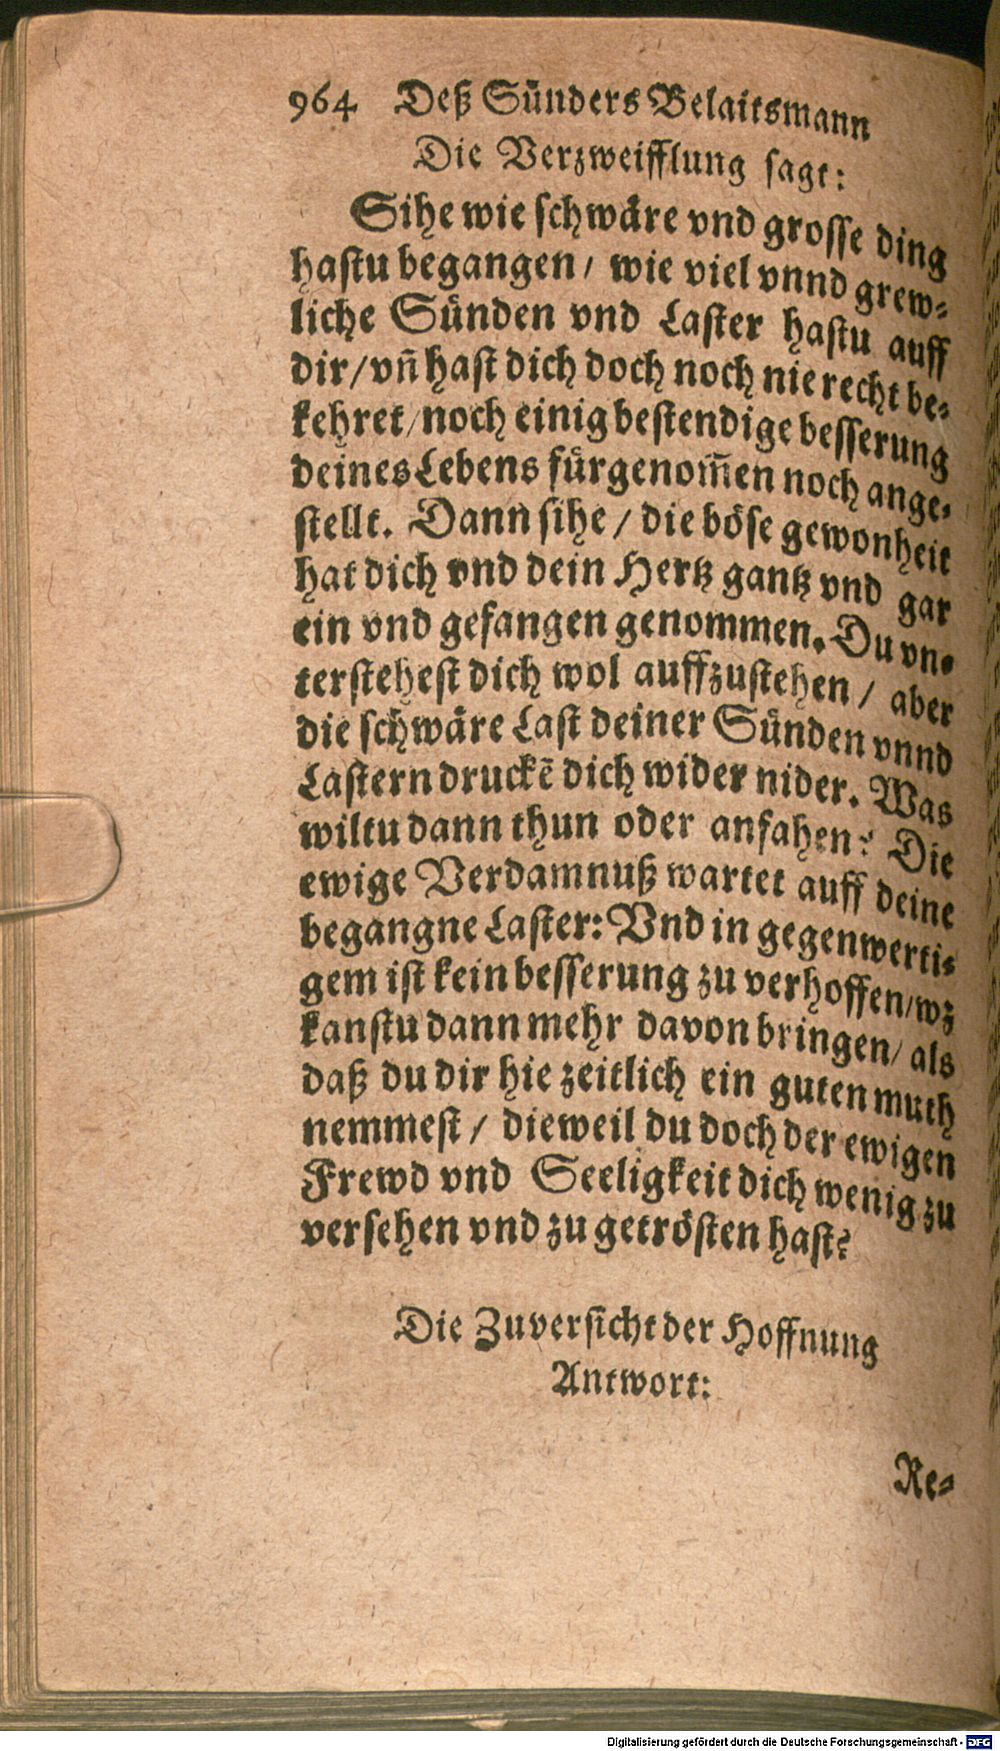 964 Deß Sünders Belaitsmann
Die Verzweifflung sagt:
Sihe wie schwäre vnd grosse ding
hastu begangen / wie viel vnnd grew-
liche Sünden vnd Laster hastu auff
dir/ vñ hast dich doch noch nie recht be-
kehret/ noch einig bestendige besserung
deines Lebens fürgenom̄en noch ange-
stellt. Dann sihe / die böse gewonheit
hat dich vnd dein Hertz gantz vnd gar
ein vnd gefangen genommen. Du vn-
terstehest dich wol auffzustehen / aber
die schwäre Last deiner Sünden vnnd
Lastern druckē dich wider nider. Was
wiltu dann thun oder anfahen? Die
ewige Verdamnuß wartet auff deine
begangne Laster: Vnd in gegenwerti-
gem ist kein besserung zu verhoffen/ wz
kanstu dann mehr davon bringen/ als
daß du dir hie zeitlich ein guten muth
nemmest / dieweil du doch der ewigen
Frewd vnd Seeligkeit dich wenig zu
versehen vnd zu getrösten hast?
Die Zuversicht der Hoffnung
Antwort:
Re-
Digitalisierung gefördert durch die Deutsche Forschungsgemeinschaft - DFG